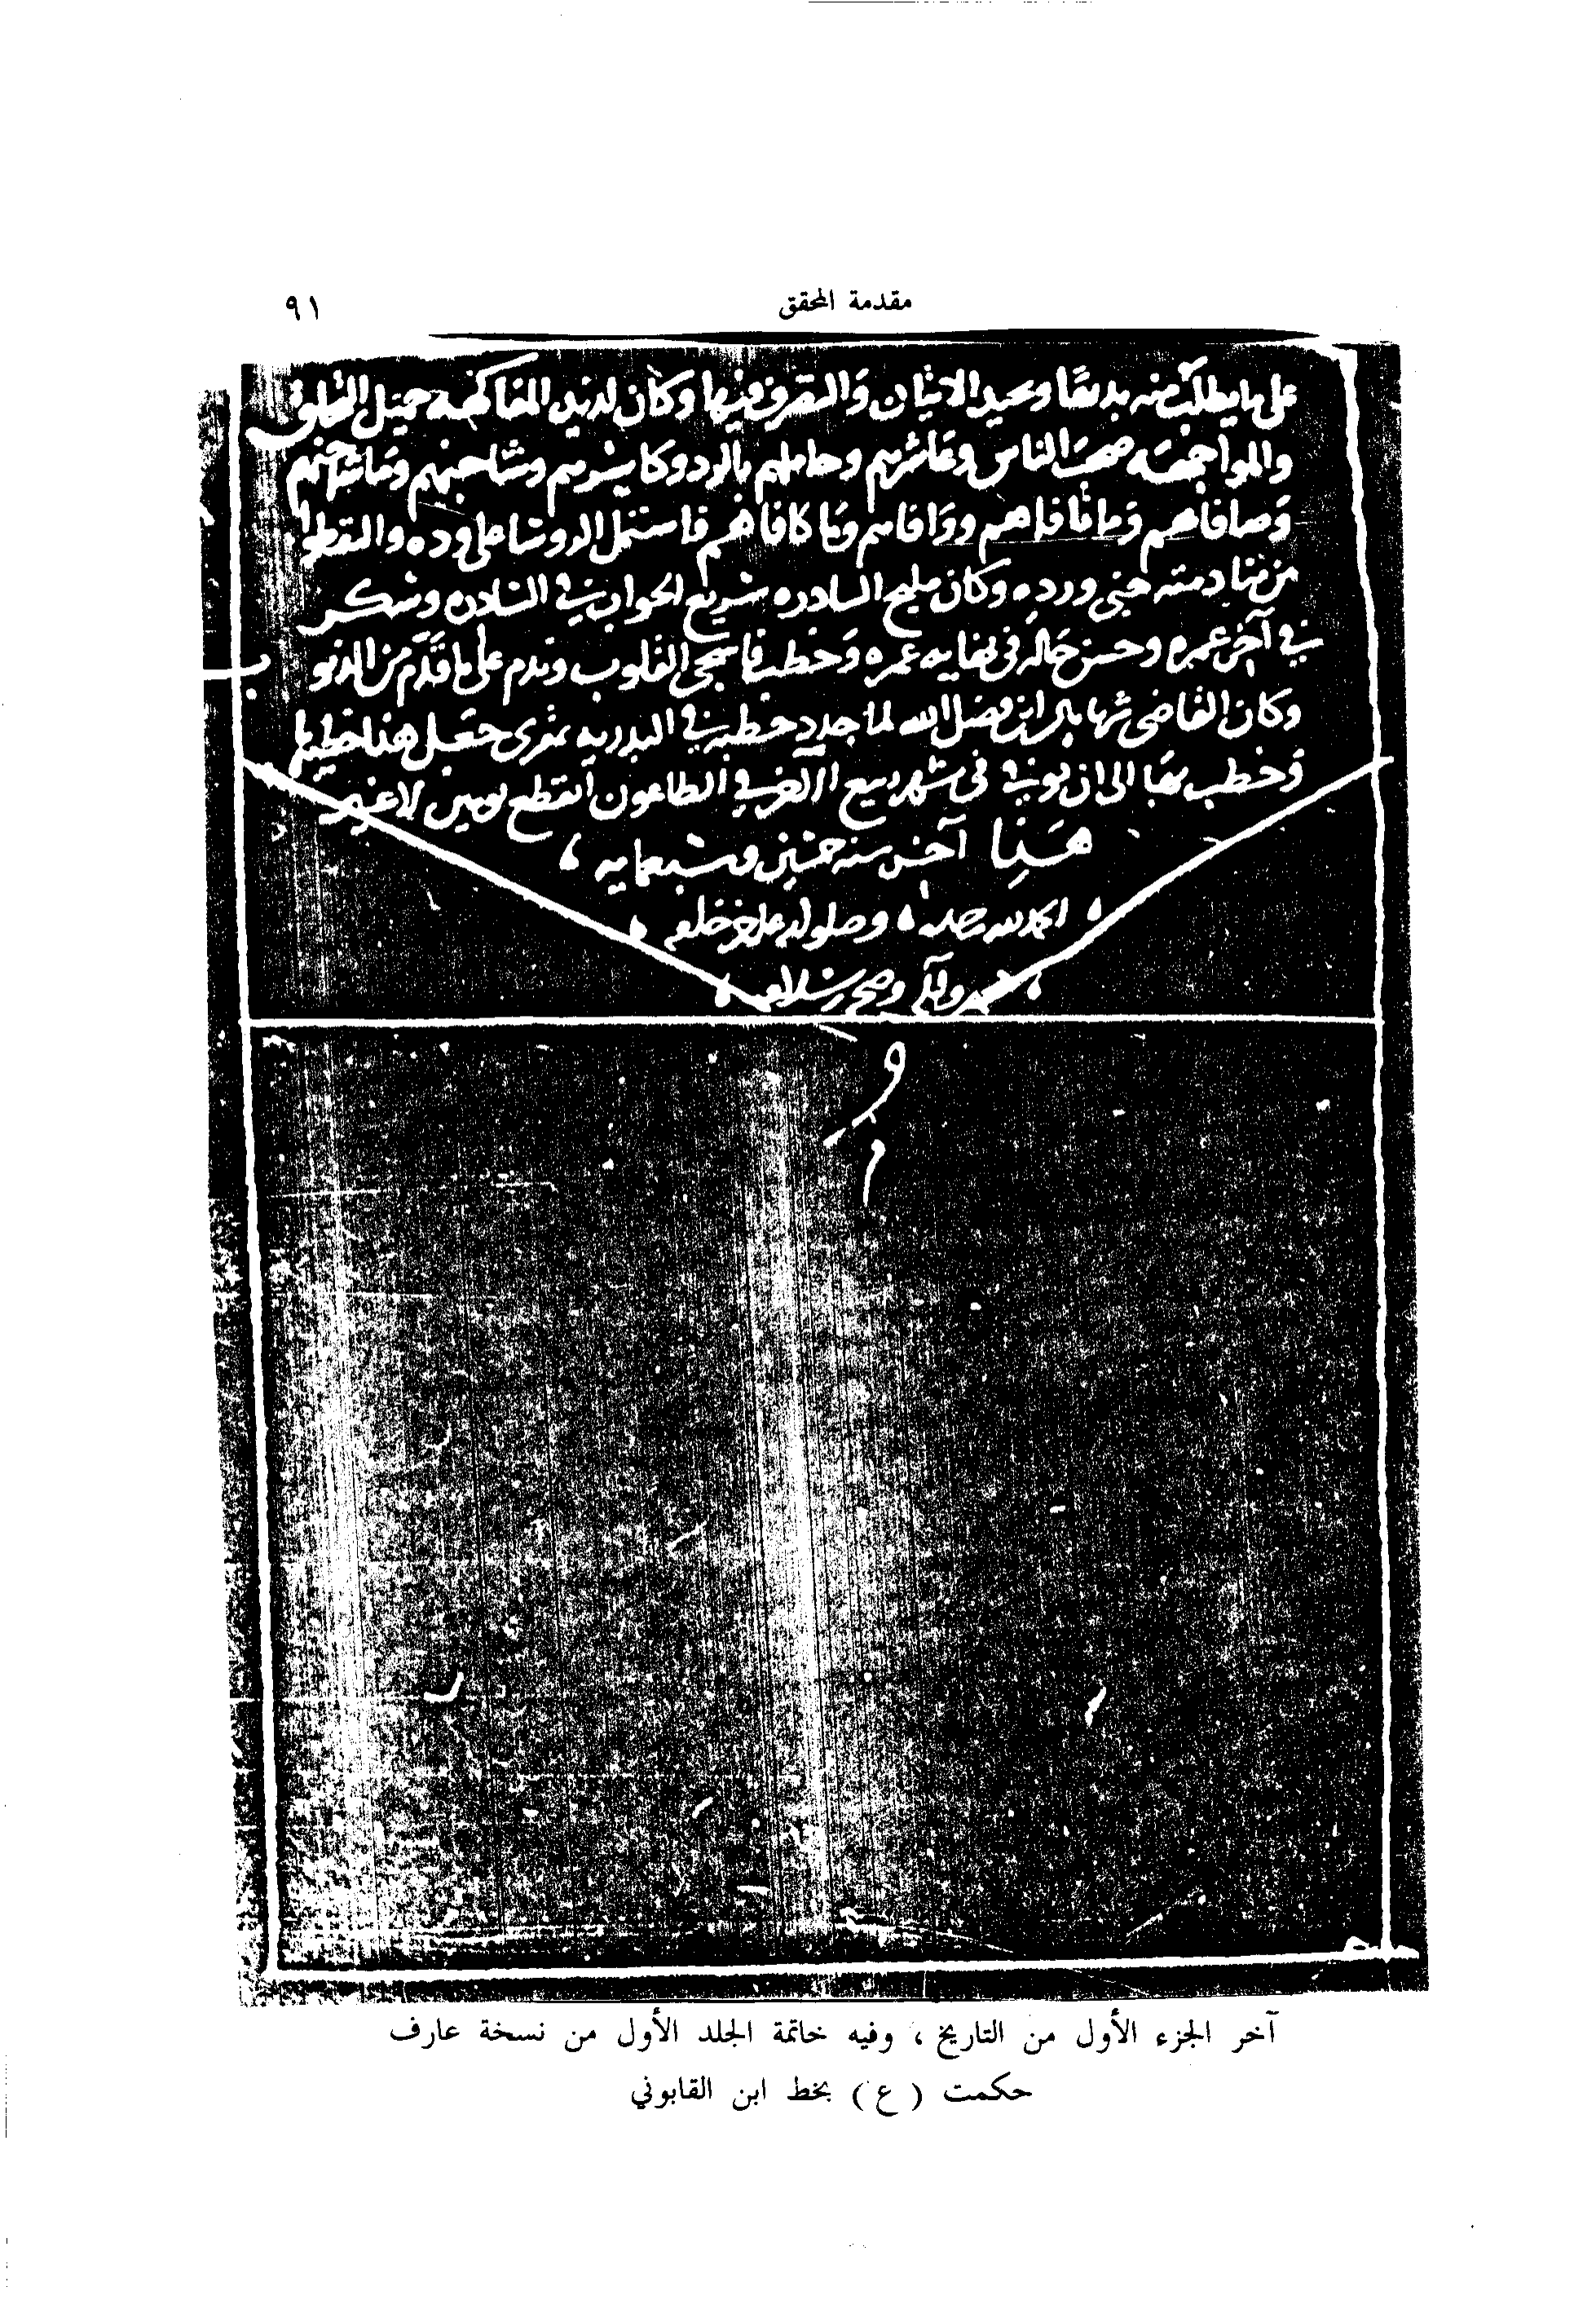 مقدمة المحقق
٩١
على ما يطلب منه بديعًا ويجيد الاتيان والتصرف فيها وكان لذيذ المفاكهة جميل
والمواجهة صحب الناس وعاشرهم وحاملهم بالود وكاشرهم
وصافاهم ووافاهم فاستمل الدوشا على وده
من منادمته جنى ورده وكان مليح النادره سريع الجواب في
في آخر عمره وحسن حاله في نهايه عمره وخطب فاشجى القلوب وندم على ما قدم من الذنو
ب
وكان القاضي شهاب الدين ابن فضل الله لما جدد خطبه في البدريه بمقرى جعل هذا خطيبا
وخطب بها الى ان توفي في شهر ربيع الآخر في الطاعون انقطع يومين لا غير
هذا آخر سنه خمسين وسبعمايه
الحمد لله وصلواته على خير خلقه
محمد وآله وصحبه وسلامه
آخر الجزء الأول من التاريخ ، وفيه خاتمة المجلد الأول من نسخة عارف
حكمت ( ع ) بخط ابن القابوني